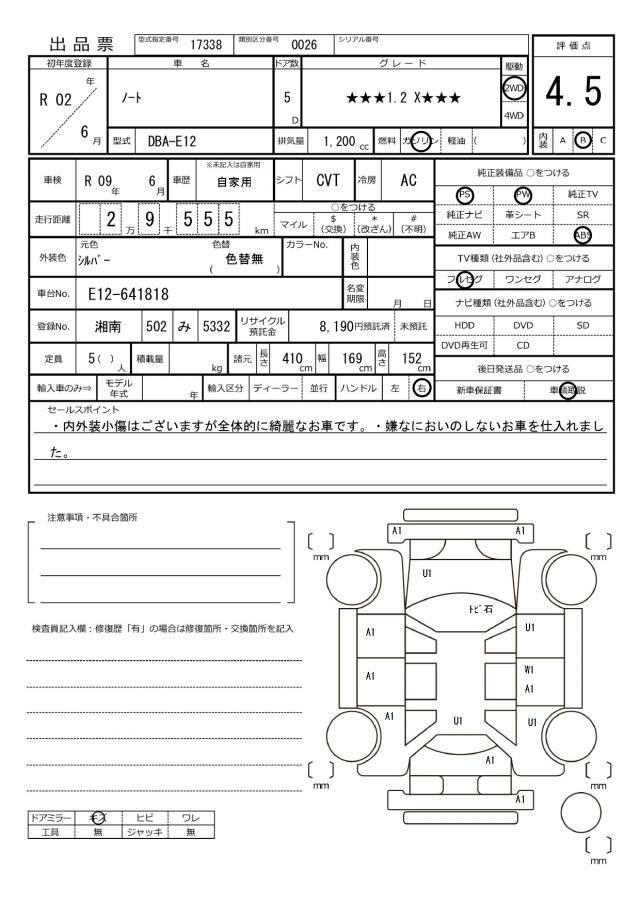 出品票
型式指定番号 17338 類別区分番号 0026 シリアル番号
評価点
初年度登録 車名 ドア数 グレード 駆動
R 02 年 6 月
ノート
5 D
★★★1.2 X★★★
2WD
4WD
4.5
型式 DBA-E12 排気量 1,200 cc 燃料 ガソリン 軽油 ( )
内装 A B C
車検 R 09 年 6 月 車歴 ※未記入は自家用 自家用 シフト CVT 冷房 AC
純正装備品 ○をつける
PS PW 純正TV
純正ナビ 革シート SR
純正AW エアB ABS
走行距離 2 万 9 千 5 5 5 km
○をつける
マイル $ (交換) * (改ざん) # (不明)
外装色 元色 シルバー 色替 ( 色替無 ) カラーNo. 内装色
TV種類 (社外品含む) ○をつける
フルセグ ワンセグ アナログ
車台No. E12-641818 名変期限 月 日
ナビ種類 (社外品含む) ○をつける
HDD DVD SD
DVD再生可 CD
登録No. 湘南 502 み 5332 リサイクル預託金 8,190円預託済 未預託
定員 5( ) 人 積載量 kg 諸元 長さ 410 cm 幅 169 cm 高さ 152 cm
後日発送品 ○をつける
新車保証書 車輌取説
輸入車のみ⇒ モデル年式 年 輸入区分 ディーラー 並行 ハンドル 左 右
セールスポイント
・内外装小傷はございますが全体的に綺麗なお車です。・嫌なにおいのしないお車を仕入れまし
た。
注意事項・不具合箇所
検査員記入欄：修復歴「有」の場合は修復箇所・交換箇所を記入
A1 A1
mm mm
U1
トビ石
A1 U1
A1 W1
A1
A1 U1 U1
A1
mm mm
A1
mm
ドアミラー キズ ヒビ ワレ
工具 無 ジャッキ 無